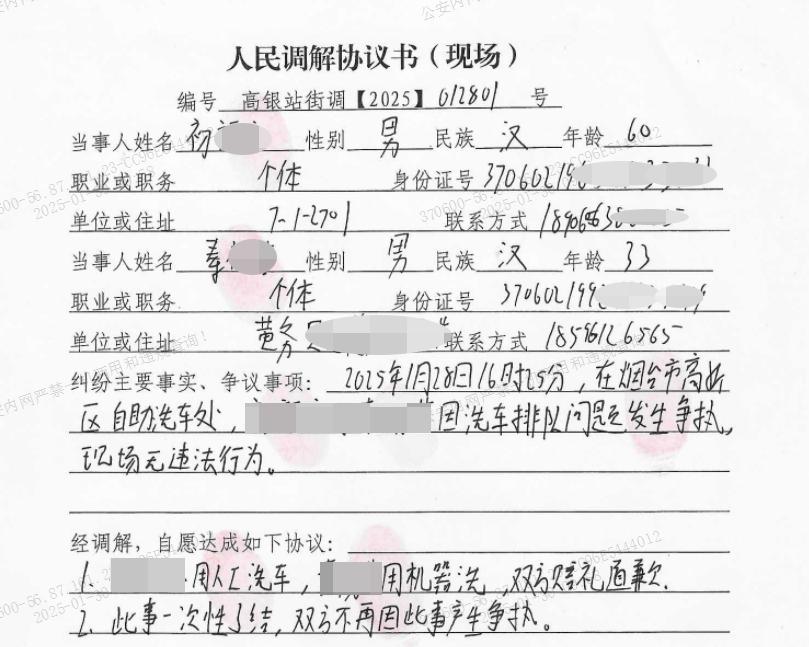 人民调解协议书（现场）
编号 高银站街调【2025】012801 号
当事人姓名 初 性别 男 民族 汉 年龄 60
职业或职务 个体 身份证号 370602196
单位或住址 7-1-2701 联系方式
当事人姓名 性别 男 民族 汉 年龄 33
职业或职务 个体 身份证号 370602199
单位或住址 黄务 联系方式 18596126565
纠纷主要事实、争议事项：2025年1月28日16时25分，在烟台市高新
区自助洗车处， 因洗车排队问题发生争执。
现场无违法行为。
经调解，自愿达成如下协议：
1、 用人工洗车， 用机器洗，双方赔礼道歉。
2、此事一次性了结，双方不再因此事产生争执。